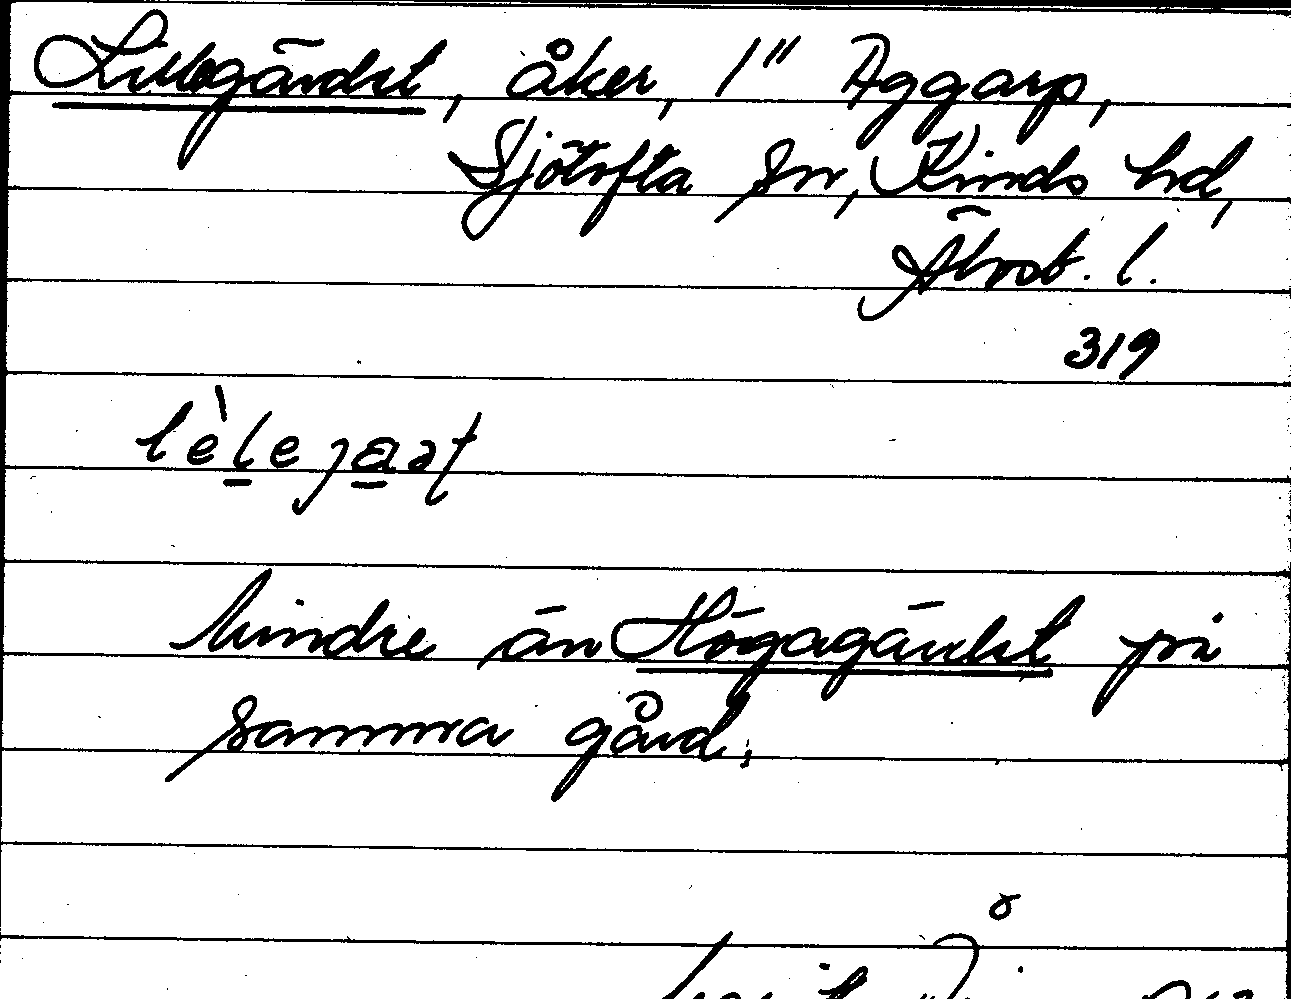 Lillegärdet, åker, 1" Aggarp,
Sjötofta sn, Kinds hd,
Älvsb. l.
319
Mindre än Högagärdet på
samma gård.